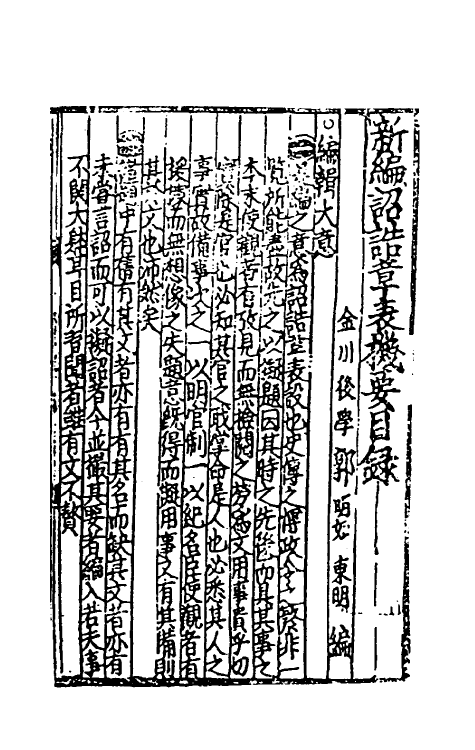 新編詔誥章表機要目錄
金川後學郭明如東明編
編輯大意
是編之意為詔誥章表設也史傳之傳政令之繁非一
覽所能盡故先之以擬題因其時之先後而具其事之
本末使觀者有攷見而無檢閱之勞焉文用事貴乎切
實故是官也必知其官之職掌命是人也必悉其人之
事實故備事文之一以明官制一以紀名臣使觀者有
援學而無想像之失題意既得而擬用事又有其備則
其於文也沛然矣
題中有舊有其文者亦有有其名而缺其文者亦有
未嘗言詔而可以擬詔者今並撮其要者編入若夫事
不關大肆耳目所習聞者雖有文不贅